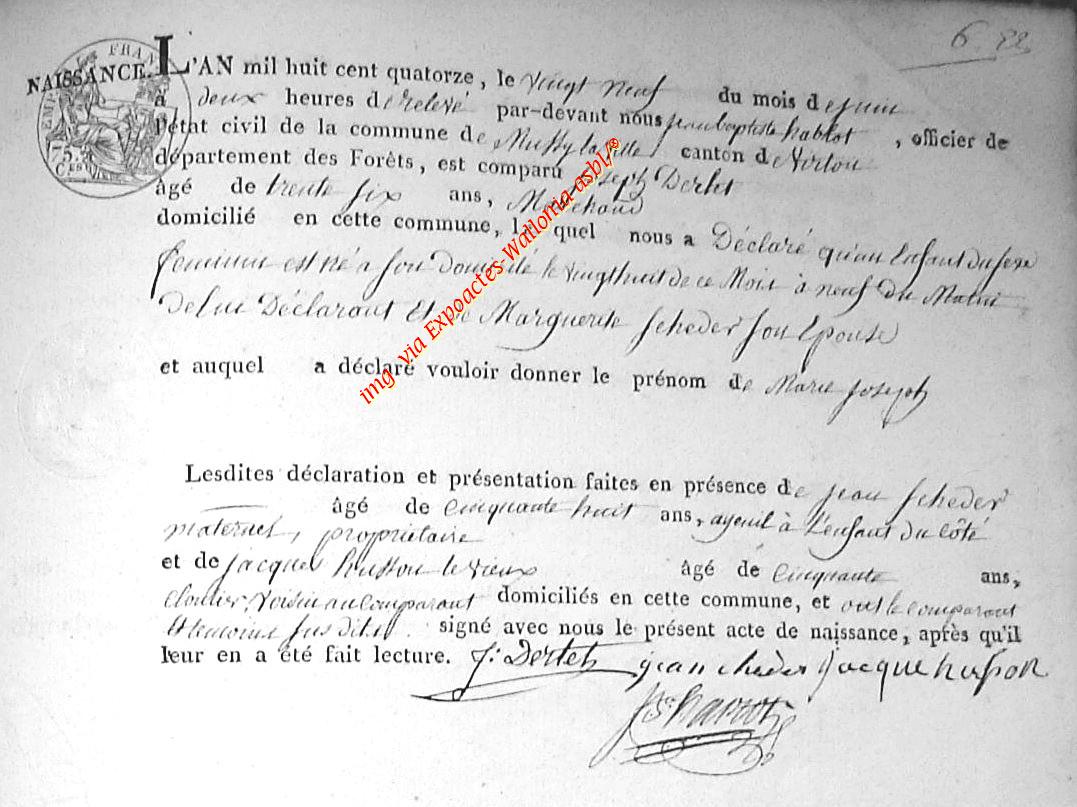 6.
FRAN
75 Cts
NAISSANCE. L'AN mil huit cent quatorze, le vingt neuf du mois de juin
à deux heures de relevé par-devant nous jean baptiste hablot, officier de
l'état civil de la commune de Mussy la ville canton de Virton
département des Forêts, est comparu Joseph Dertet
âgé de trente six ans, Marchand
domicilié en cette commune, lequel nous a Déclaré qu'un Enfant du sexe
feminin est né a son Domicile le vingt huit de ce Mois à neuf du Matin
de lui Déclarant Et de Marguerite scheder son Epouse
et auquel a déclaré vouloir donner le prénom de Marie joseph
Lesdites déclaration et présentation faites en présence de jean scheder
âgé de cinquante huit ans, ayeuil à l'enfant du côté
maternel, propriétaire
et de jacques husson le vieux âgé de cinquante ans,
cloutier, voisin au comparant domiciliés en cette commune, et ont le comparant
et temoins susdits signé avec nous le présent acte de naissance, après qu'il
leur en a été fait lecture. J: Dertet jean cheder jacque huson
img via Expoactes-Wallonia asbl/®